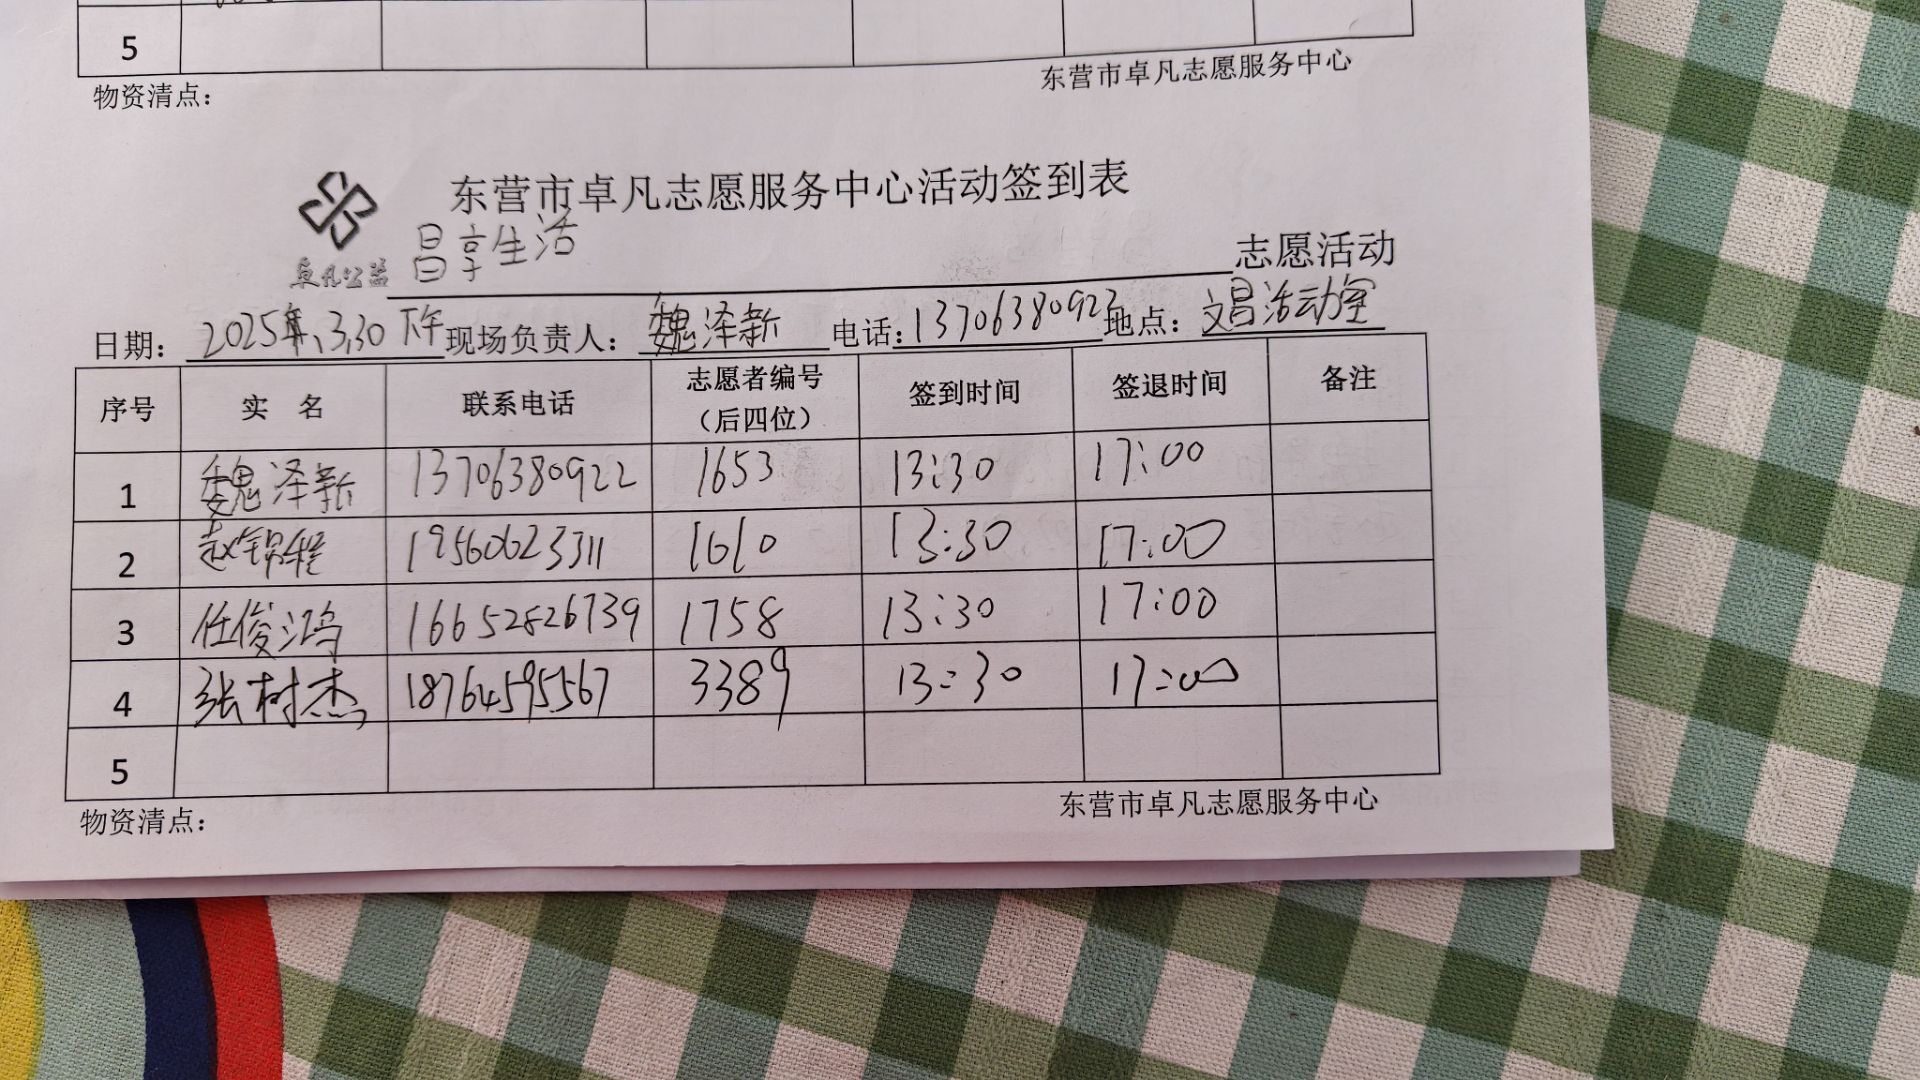 5
东营市卓凡志愿服务中心
物资清点：
东营市卓凡志愿服务中心活动签到表
卓凡公益
昌享生活 志愿活动
日期：2025年.3.30 下午 现场负责人：魏泽新 电话：13706380922 地点：文昌活动室
序号 实 名 联系电话 志愿者编号（后四位） 签到时间 签退时间 备注
1 魏泽新 13706380922 1653 13:30 17:00
2 赵锦程 19560623311 1610 13:30 17:00
3 任俊鸿 16652826739 1758 13:30 17:00
4 张树杰 18764595567 3389 13:30 17:00
5
东营市卓凡志愿服务中心
物资清点：